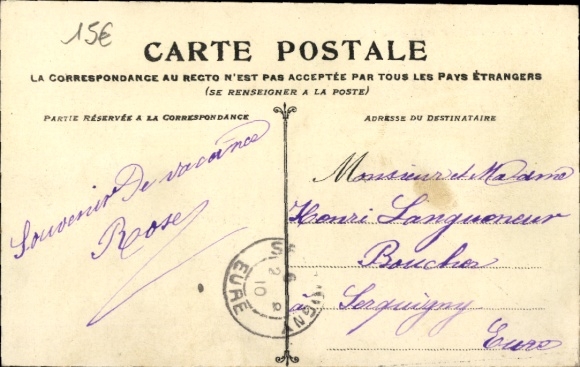 15€
CARTE POSTALE
LA CORRESPONDANCE AU RECTO N'EST PAS ACCEPTÉE PAR TOUS LES PAYS ÉTRANGERS
(SE RENSEIGNER A LA POSTE)
PARTIE RÉSERVÉE A LA CORRESPONDANCE
ADRESSE DU DESTINATAIRE
Souvenir De vacance
Rose
Monsieur et Madame
Henri Langueneur
Boucher
à Serquigny
Eure
EURE